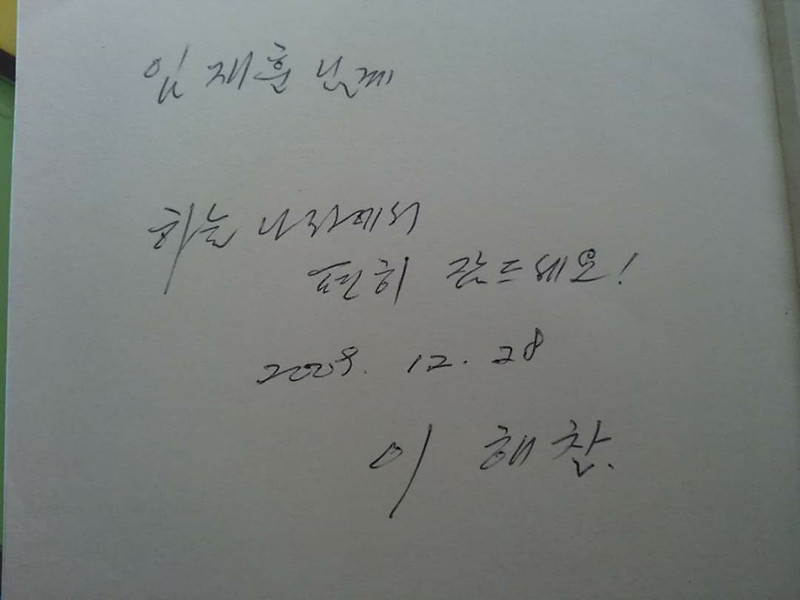 임재훈 님께
하늘나라에서
편히 잠드세요!
2009. 12. 28
이 해찬.